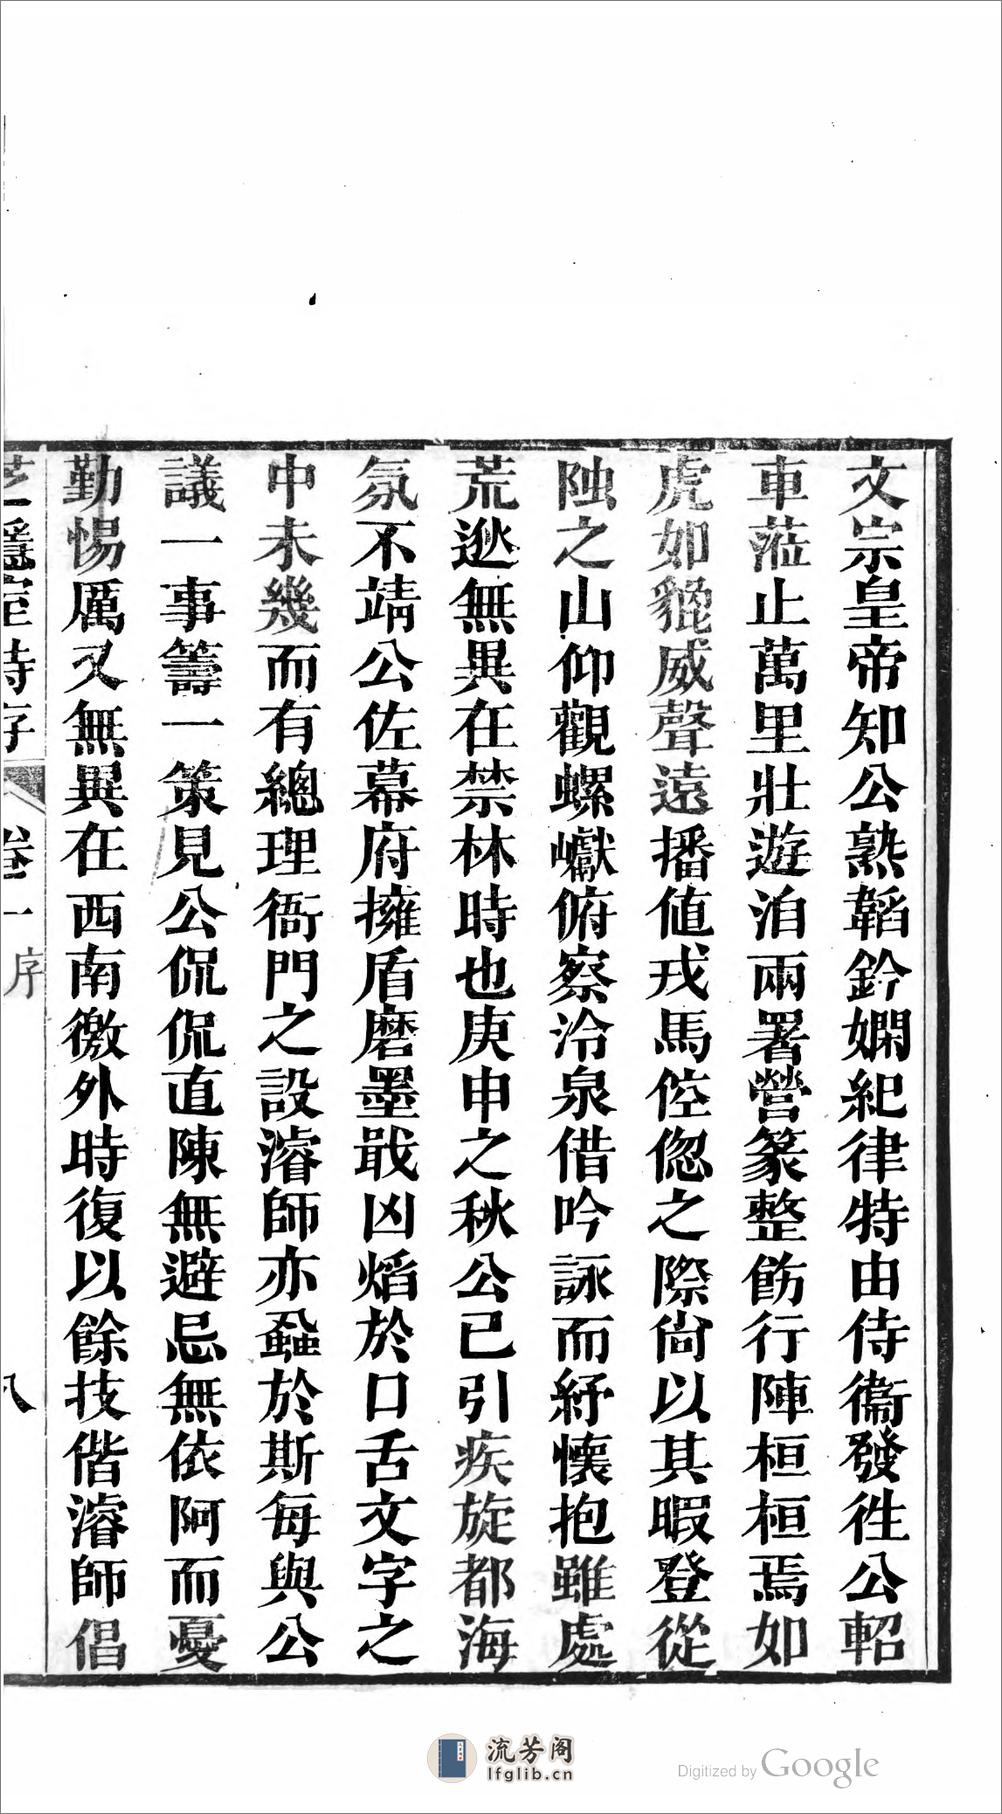 文宗皇帝知公熟韜鈐嫻紀律特由侍衞發徃公軺
車蒞止萬里壯遊洎兩署營篆整飭行陣桓桓焉如
虎如貔威聲遠播値戎馬倥偬之際尙以其暇登從
陁之山仰觀螺巘俯察冷泉借吟詠而紓懷抱雖處
荒逖無異在禁林時也庚申之秋公已引疾旋都海
氛不靖公佐幕府擁盾磨墨戢凶焰於口舌文字之
中未幾而有總理衙門之設濬師亦厠於斯每與公
議一事籌一策見公侃侃直陳無避忌無依阿而憂
勤惕厲又無異在西南徼外時復以餘技偕濬師倡
芝隱室詩存 卷一 序 八
流芳阁
lfglib.cn
Digitized by Google